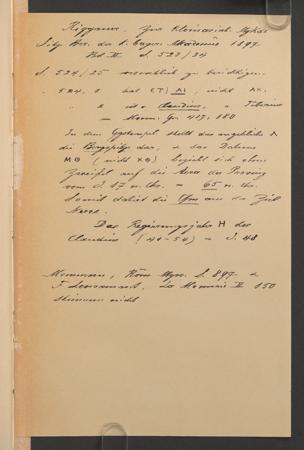 Riggauer, Zur kleinasiat. Mythol.
Sitz. Ber. der k. bayer. Akademie 1897.
Bd. II S. 523/34
S. 524/25 wesentlich zu berichtigen.
524, 1 hat ET|AI, nicht AX.
" 2 ist Claudius, " Tiberius
= Gr. 417, 180
In dem Gegenstempel stellt das angebliche Λ
die Bergspitze dar, & das Datum
MΘ (nicht XΘ) bezieht sich ohne
Zweifel auf die Aera der Provinz
vom J. 17 n. Chr. = 65 n. Chr.
Somit datiert die aus der Zeit
Neros.
Das Regierungsjahr H des
Claudius (41-54) = J. 48
Mommsen, Röm. Mzw. S. 897 &
F. Lenormant, La Monnaie II 150
stimmen nicht